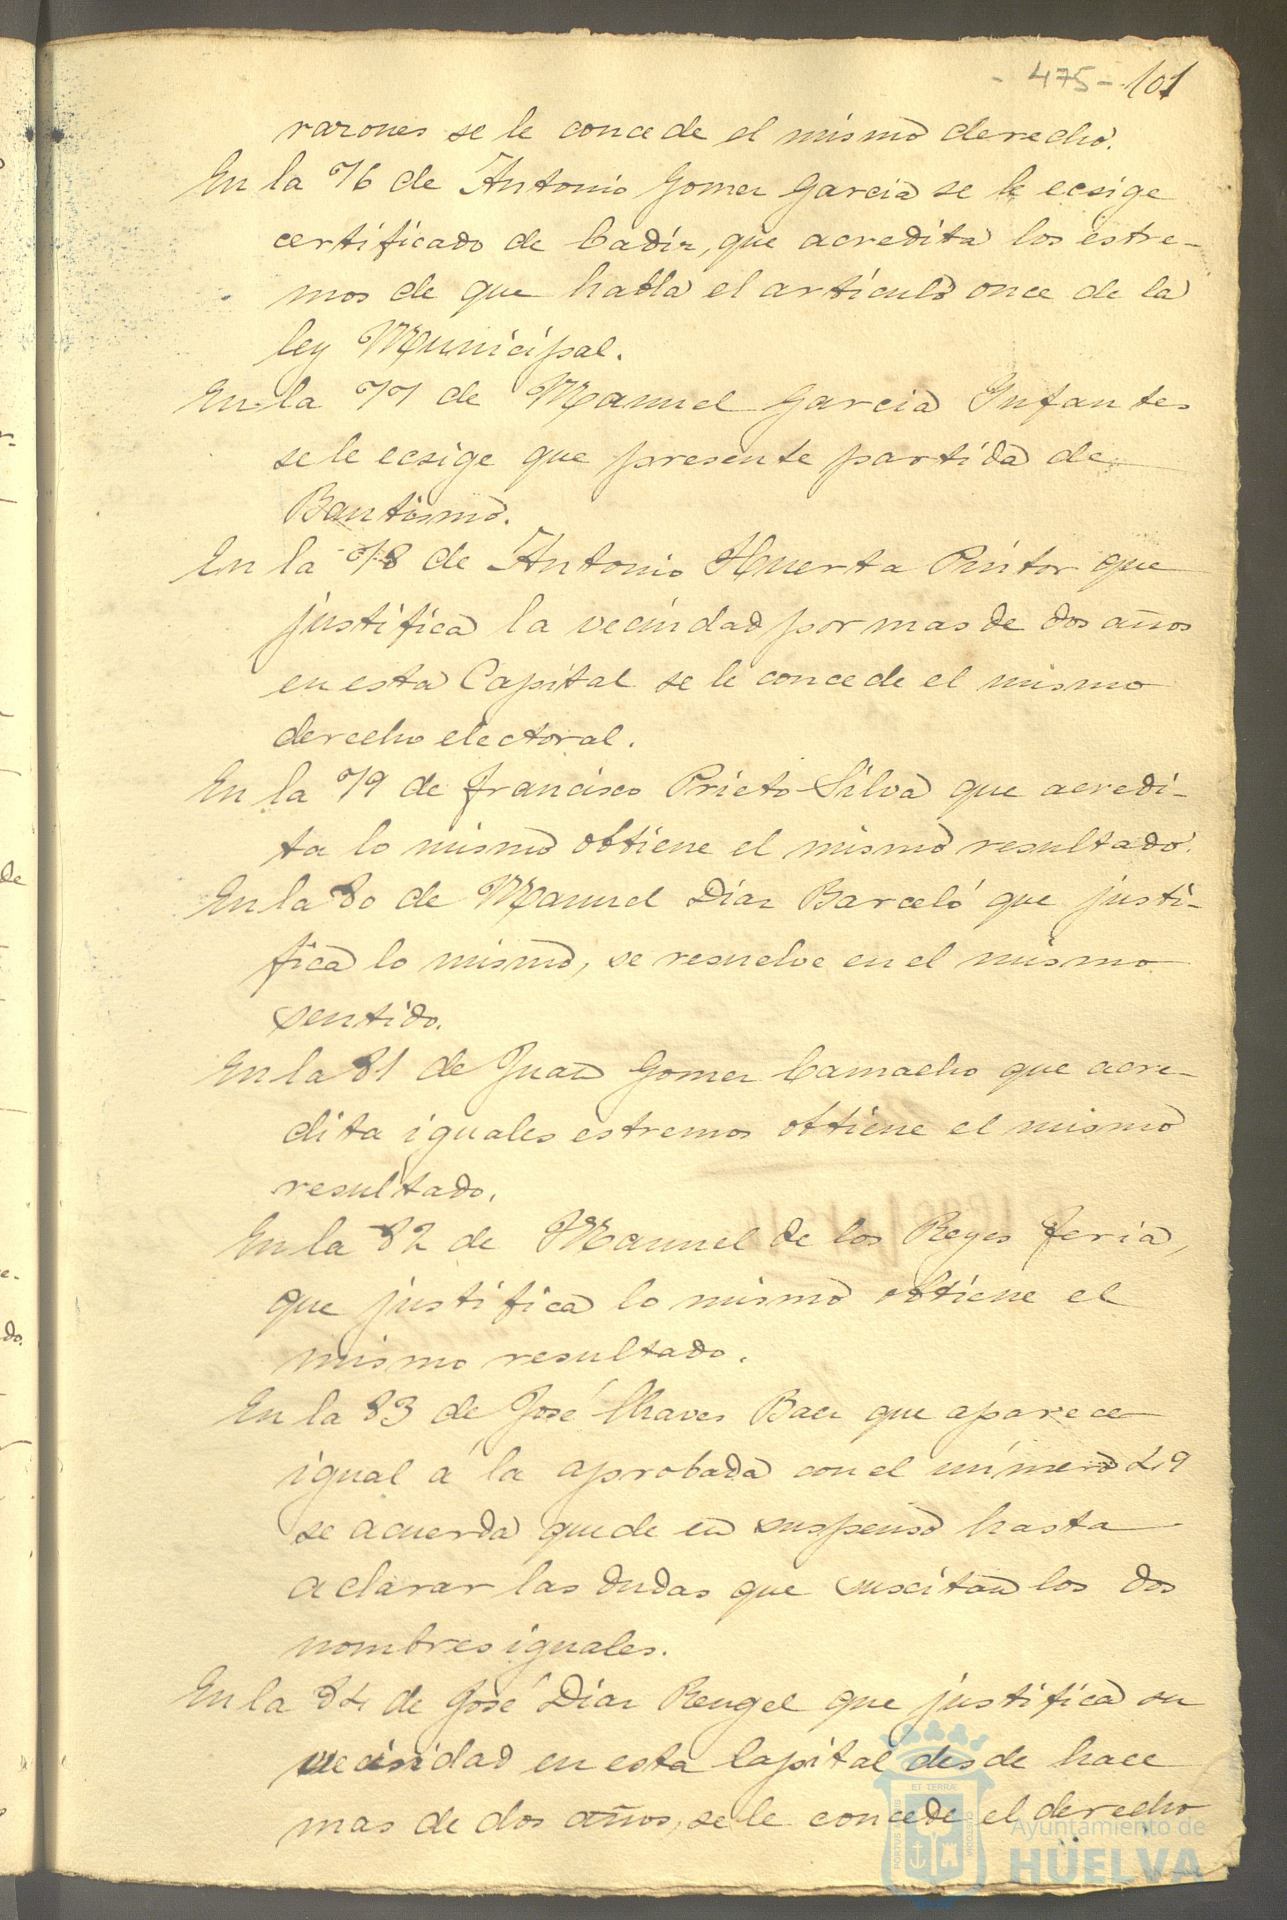 - 475 - 101
razones se le concede el mismo derecho.
En la 76 de Antonio Gomez Garcia se le ecsige
certificado de Cadiz, que acredita los estre-
mos de que habla el artículo once de la
ley Municipal.
En la 77 de Manuel Garcia Infantes
se le ecsige que presente partida de
Bautismo.
En la 78 de Antonio Huerta Pintor que
justifica la vecindad por mas de dos años
en esta Capital se le concede el mismo
derecho electoral.
En la 79 de Francisco Prieto Silva que acredi-
ta lo mismo obtiene el mismo resultado.
En la 80 de Manuel Díaz Barceló que justi-
fica lo mismo, se resuelve en el mismo
sentido.
En la 81 de Juan Gomez Camacho que acre-
dita iguales estremos obtiene el mismo
resultado.
En la 82 de Manuel de los Reyes Feria,
que justifica lo mismo obtiene el
mismo resultado.
En la 83 de José Chaves Baez que aparece
igual á la aprobada con el número 49
se acuerda quede en suspenso hasta
aclarar las dudas que suscitan los dos
nombres iguales.
En la 84 de José Díaz Rengel que justifica su
vecindad en esta Capital desde hace
mas de dos años, se le concede el derecho
ET TERRAE
PORTUS MARIS
CUSTODIA
Ayuntamiento de
HUELVA